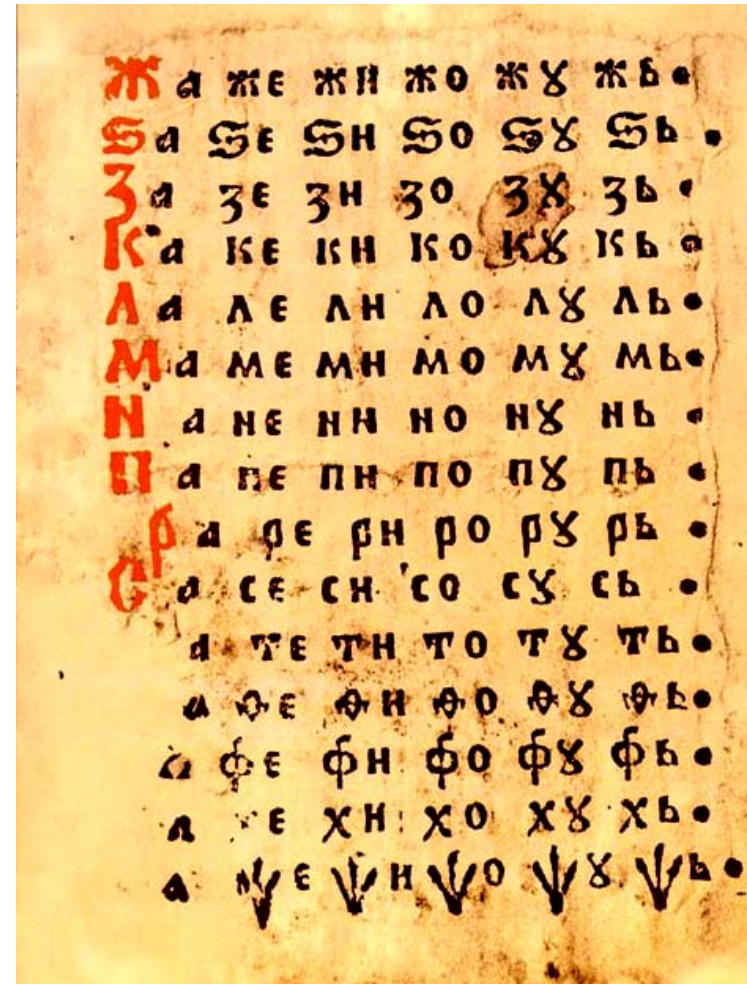 Жа же жи жо жꙋ жь •
Ѕа ѕе ѕи ѕо ѕꙋ ѕь •
За зе зи зо зꙋ зь •
Ка ке ки ко кꙋ кь •
Ла ле ли ло лꙋ ль •
Ма ме ми мо мꙋ мь •
На не ни но нꙋ нь •
Па пе пи по пꙋ пь •
Ра ре ри ро рꙋ рь •
Са се си со сꙋ сь •
а те ти то тꙋ ть •
а ѳе ѳи ѳо ѳꙋ ѳь •
а фе фи фо фꙋ фь •
а е хи хо хꙋ хь •
а ѱе ѱи ѱо ѱꙋ ѱь •